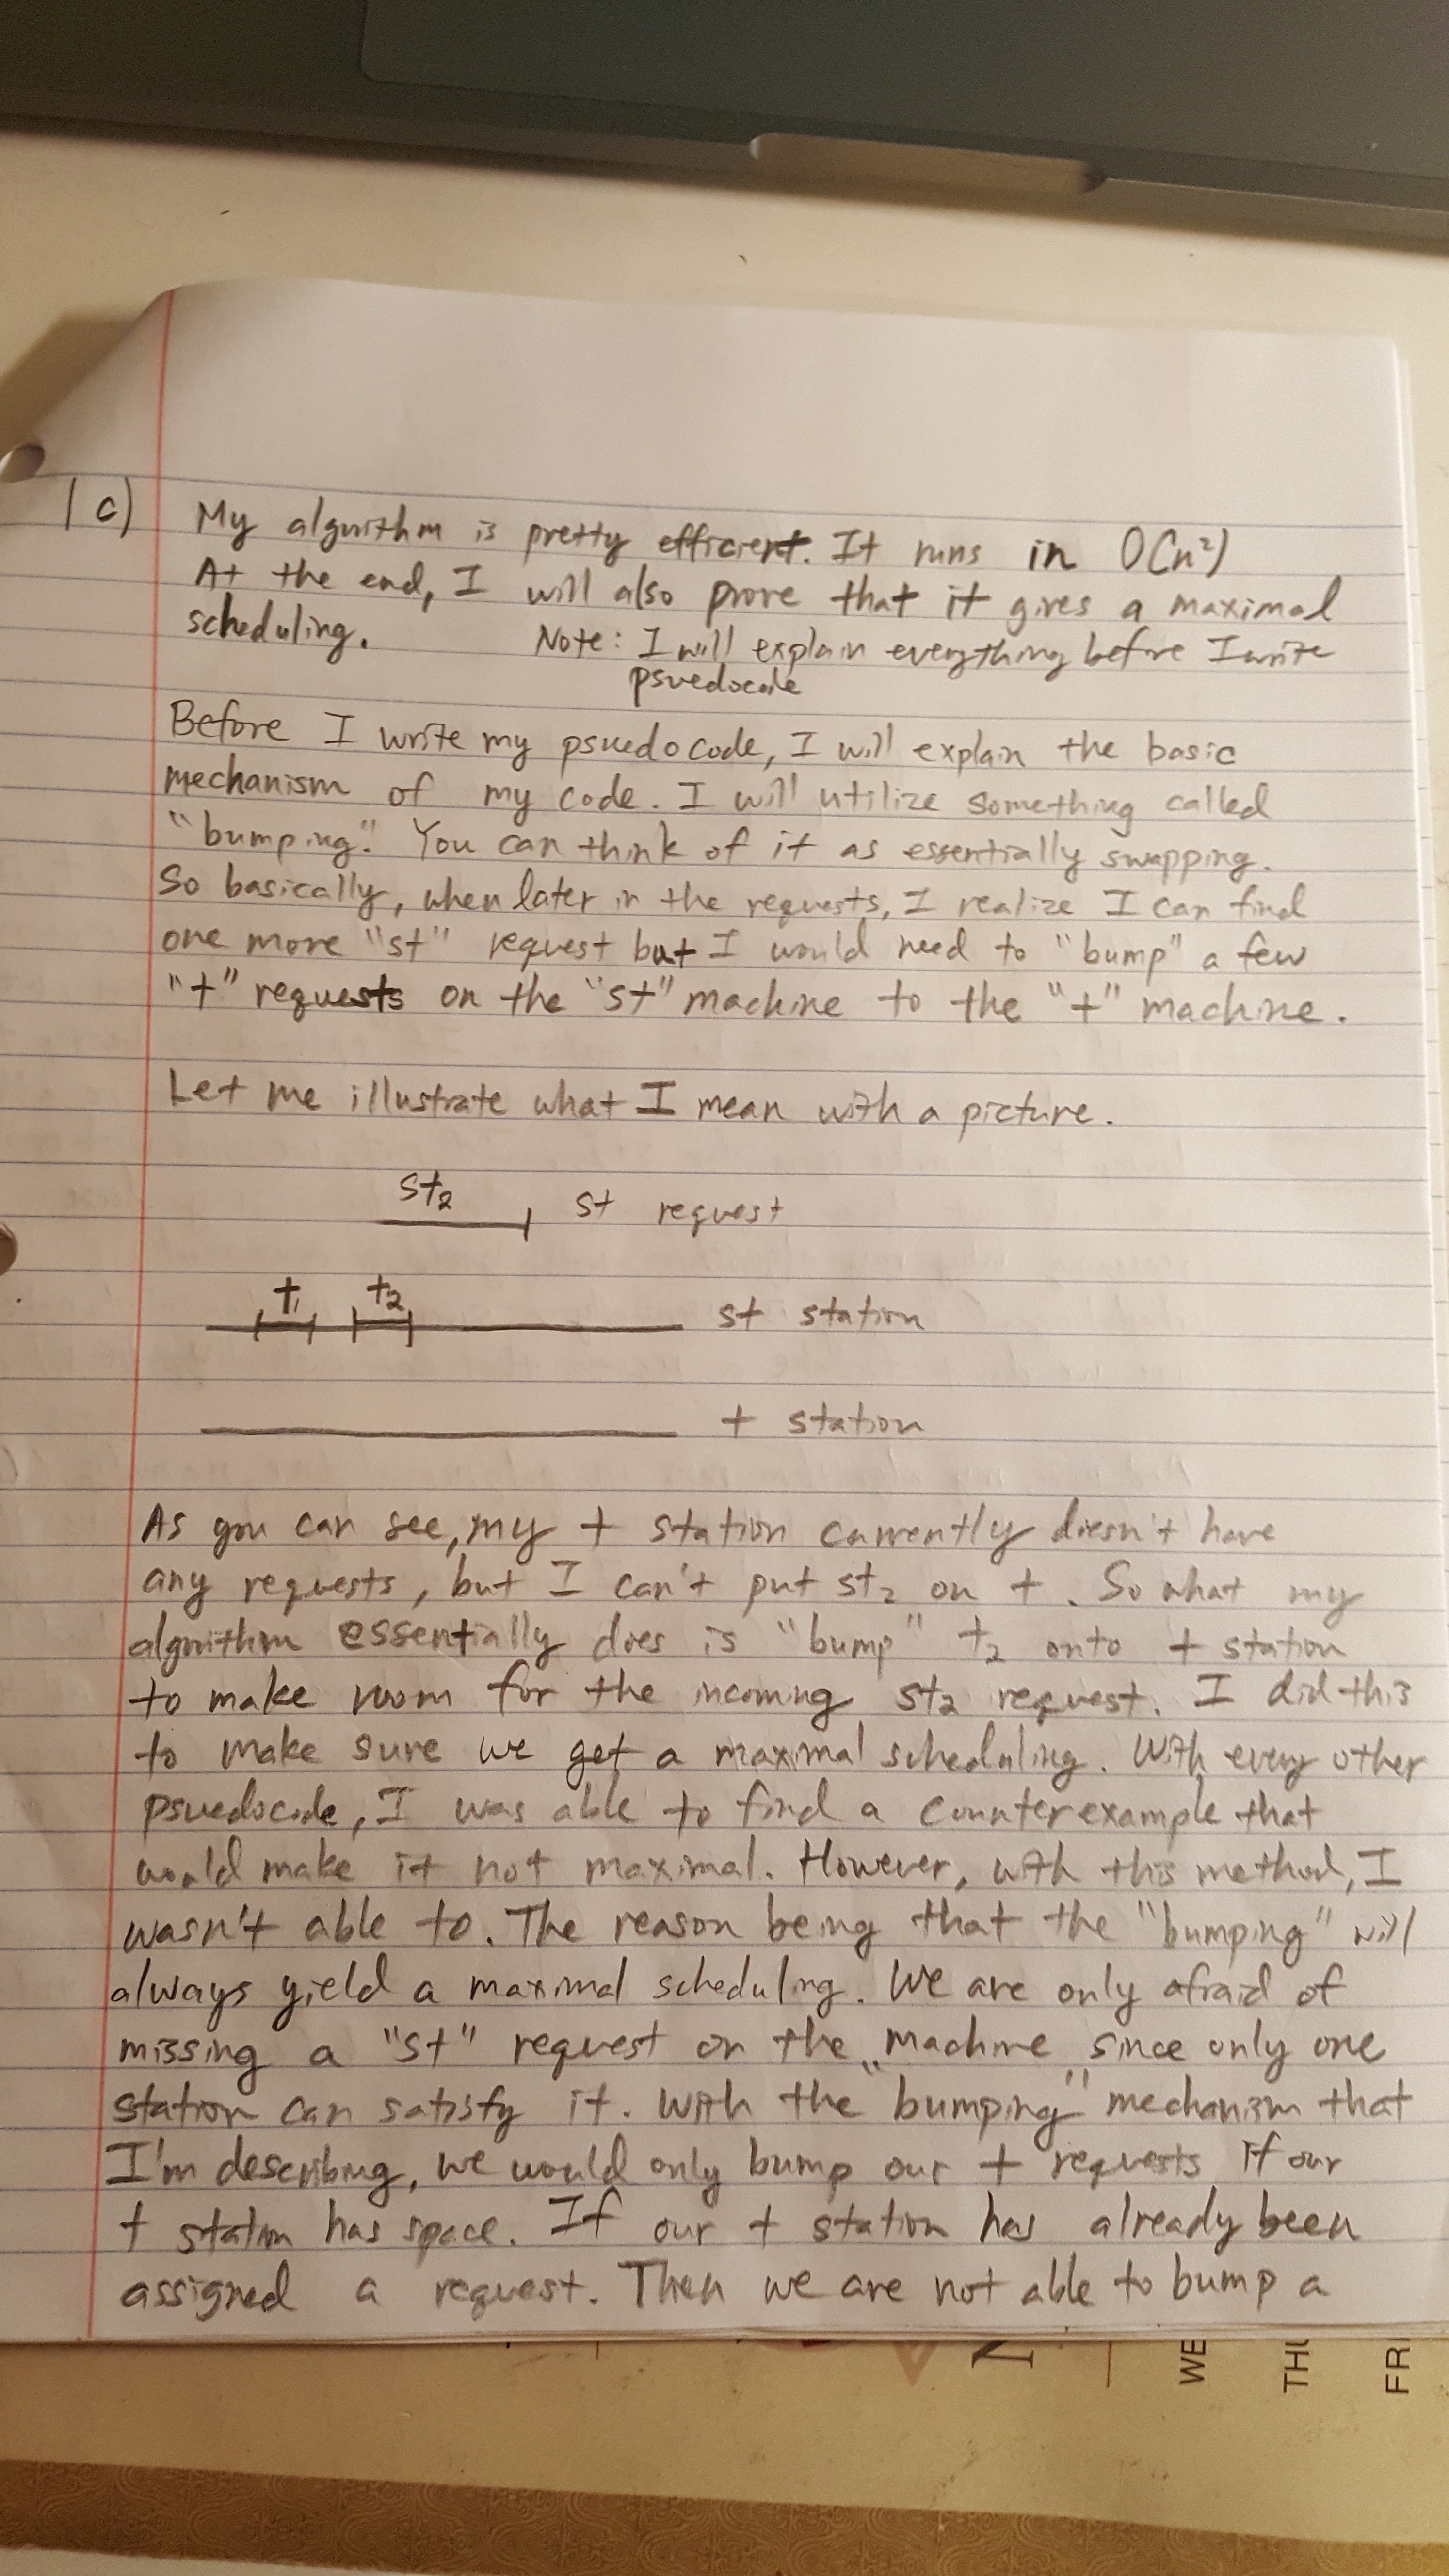 1 c) My algorithm is pretty efficient. It runs in O(n²)
At the end, I will also prove that it gives a maximal
scheduling. Note: I will explain everything before I write
psuedocode
Before I write my psuedocode, I will explain the basic
mechanism of my code. I will utilize something called
"bumping". You can think of it as essentially swapping.
So basically, when later in the requests, I realize I can find
one more "st" request but I would need to "bump" a few
"t" requests on the "st" machine to the "t" machine.
Let me illustrate what I mean with a picture.
st₂ st request
t₁ t₂ st station
t station
As you can see, my t station currently doesn't have
any requests, but I can't put st₂ on t. So what my
algorithm essentially does is "bump" t₂ onto t station
to make room for the incoming st₂ request. I did this
to make sure we get a maximal scheduling. With every other
psuedocode, I was able to find a counterexample that
would make it not maximal. However, with this method, I
wasn't able to. The reason being that the "bumping" will
always yield a maximal scheduling. We are only afraid of
missing a "st" request on the "machine" since only one
station can satisfy it. With the "bumping" mechanism that
I'm describing, we would only bump our t requests if our
t station has space. If our t station has already been
assigned a request. Then we are not able to bump a
WE
THU
FR